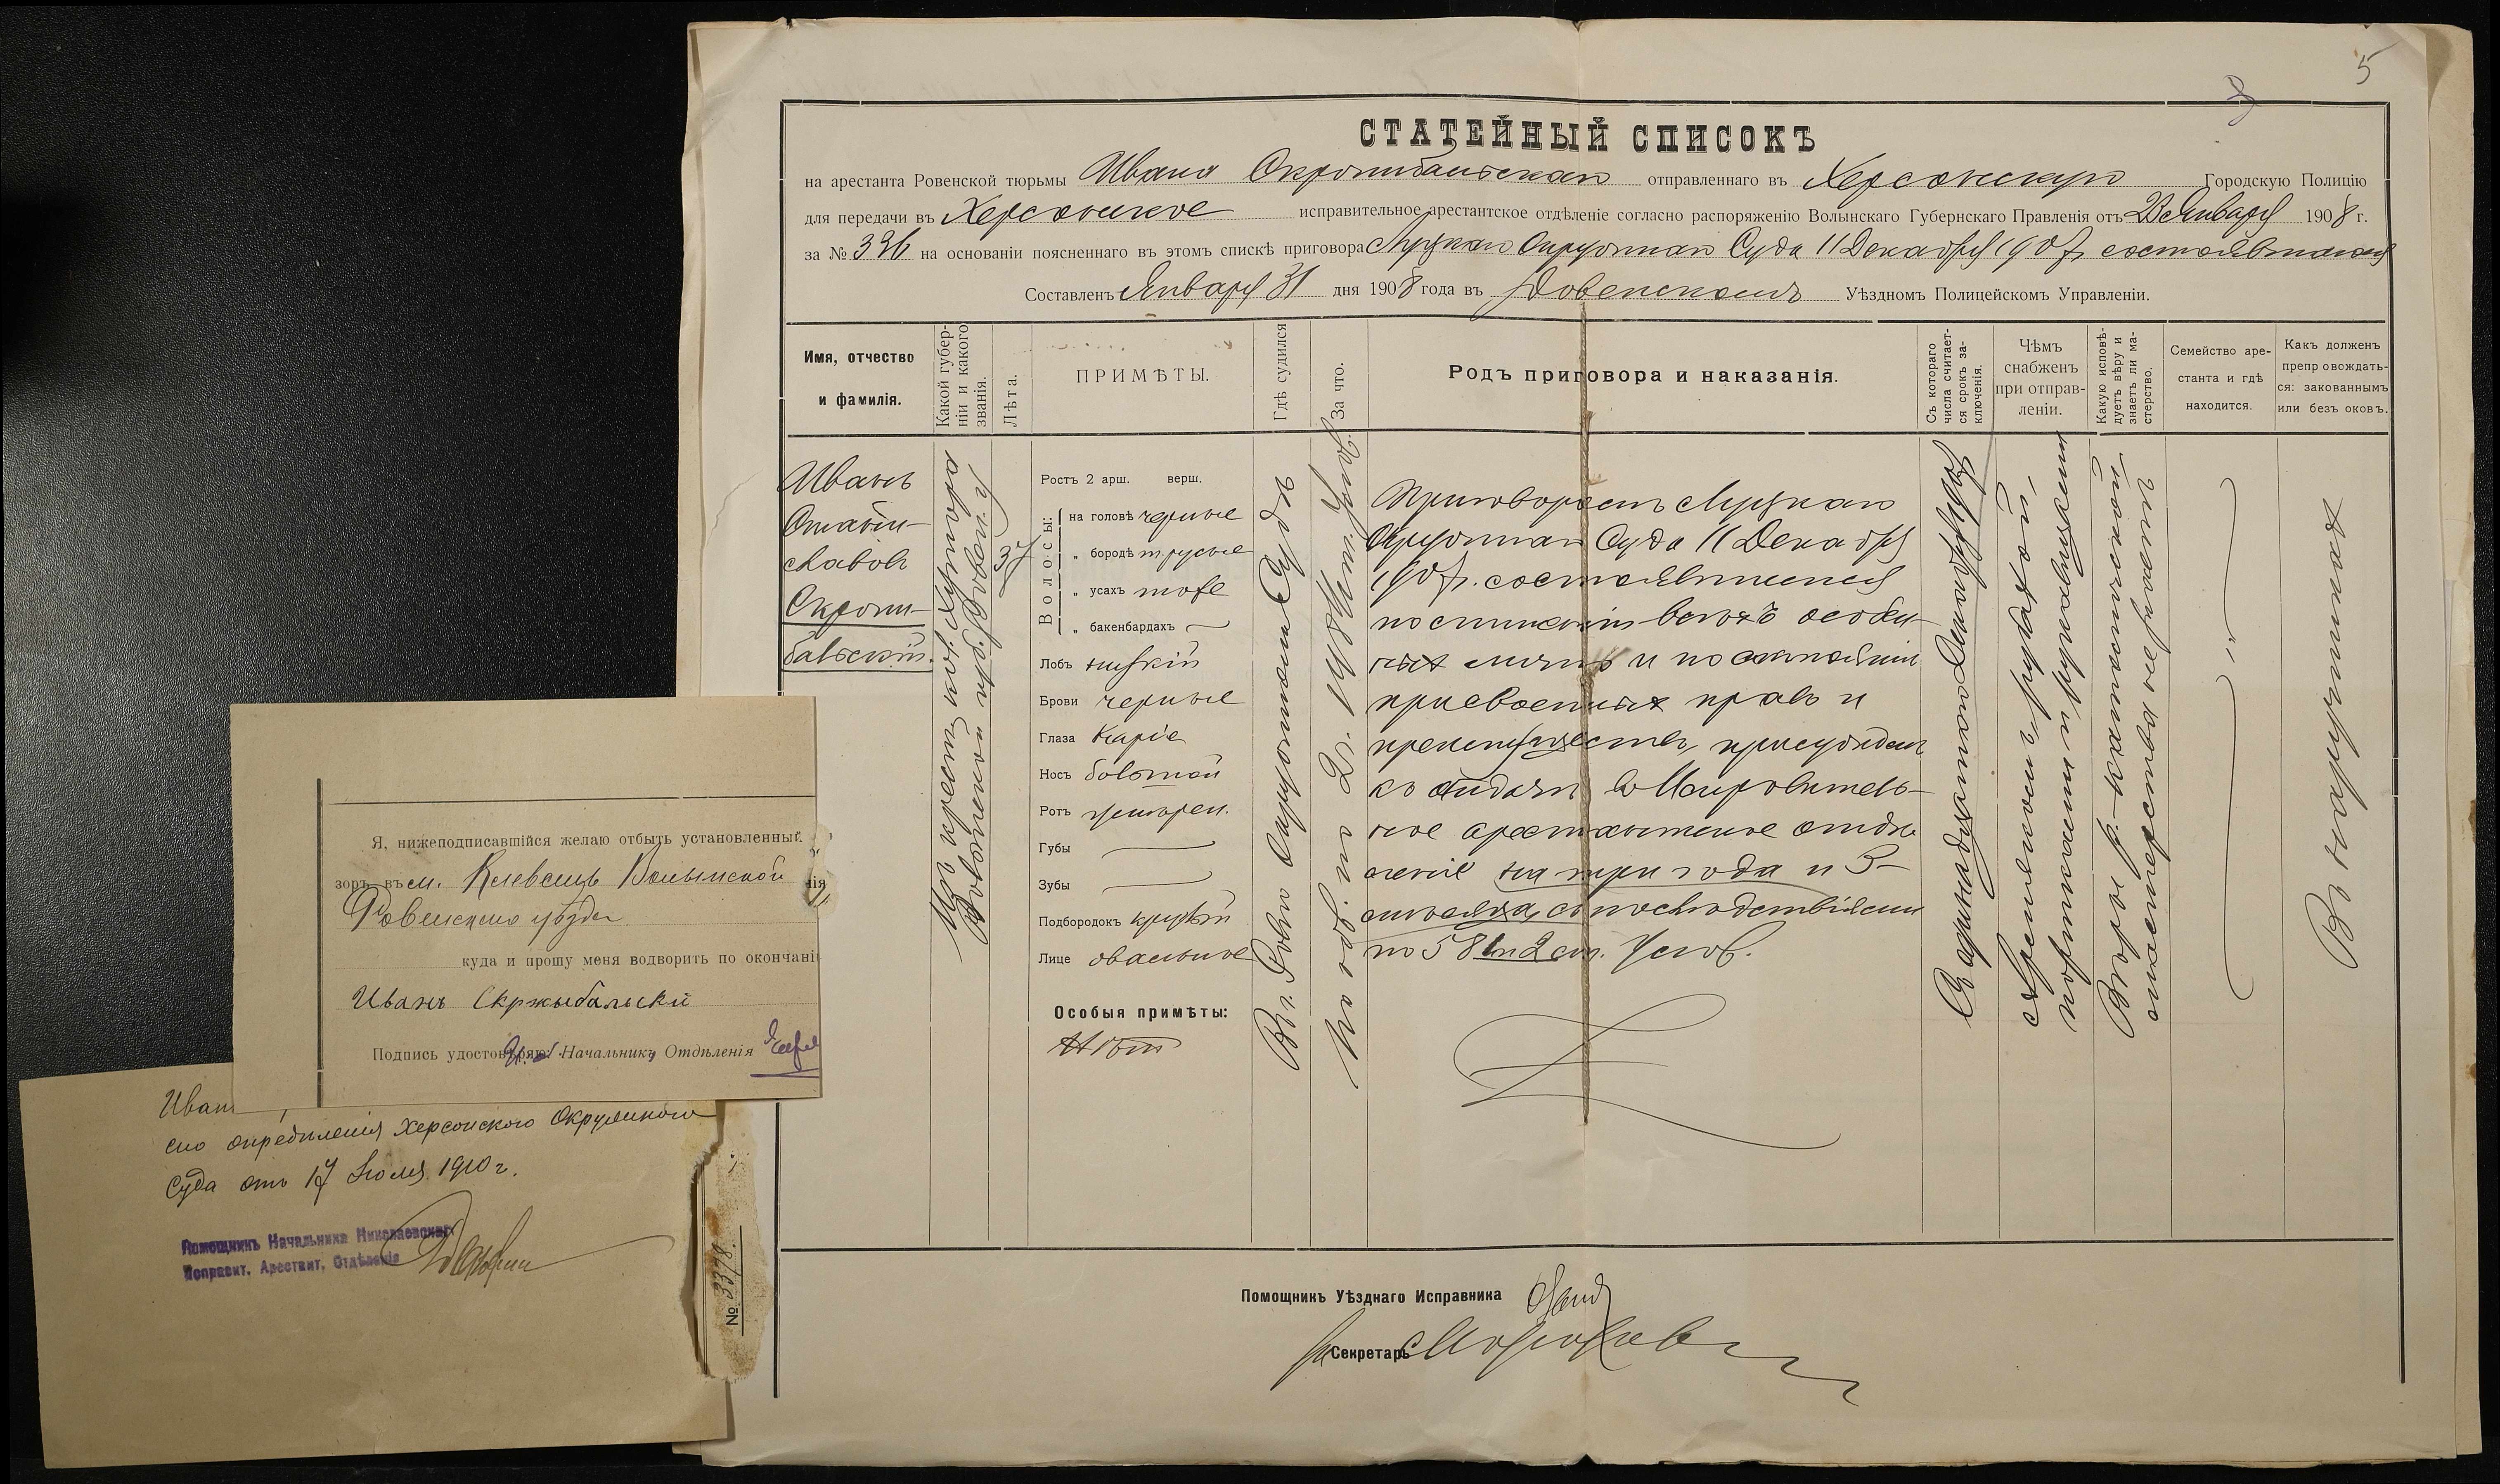 5
СТАТЕЙНЫЙ СПИСОКЪ
на арестанта Ровенской тюрьмы Ивана отправленнаго въ Херсонскую Городскую Полицію
для передачи въ Херсонское исправительное арестантское отдѣленіе согласно распоряженію Волынскаго Губернскаго Правленія отъ Января 1908 г.
за № 336 на основаніи поясненнаго въ этомъ спискѣ приговора Луцкаго Окружнаго Суда 11 Декабря 1907 г. состоявшагося
Составленъ Января 31 дня 1908 года въ Ровенскомъ Уѣздномъ Полицейскомъ Управленіи.
Имя, отчество
и фамилія.
Какой губер-
ніи и какого
званія.
Лѣта.
ПРИМѢТЫ.
Гдѣ судился
За что.
Родъ приговора и наказанія.
Съ котораго
числа считает-
ся срокъ за-
ключенія.
Чѣмъ
снабженъ
при отправ-
леніи.
Какую исповѣ-
дуетъ вѣру и
знаетъ ли ма-
стерство.
Семейство аре-
станта и гдѣ
находится.
Какъ долженъ
препровождать-
ся: закованнымъ
или безъ оковъ.
Иванъ
Стани-
славовъ
бальскій.
Изъ крест. кол.
Волынской губ. Ровен. у.
37
Ростъ 2 арш. верш.
Волосы:
на головѣ черные
„ бородѣ т. русые
„ усахъ тоже
„ бакенбардахъ —
Лобъ низкій
Брови черные
Глаза Каріе
Носъ большой
Ротъ умѣрен.
Губы —
Зубы —
Подбородокъ круглый
Лице овальное
Особыя примѣты:
Нѣтъ
Въ г. Ровно Окружномъ Судѣ
По обв. по 2 ч. 1655 ст. Улож.
Приговоромъ Луцкаго
Окружнаго Суда 11 Декабря
1907 г. состоявшемся
по лишеніи всѣхъ особен-
ныхъ лично и по состоянію
присвоенныхъ правъ и
преимуществъ, присужденъ
къ отдачѣ въ Исправитель-
ное арестантское отдѣ-
леніе на три года и 3
мѣсяца, съ послѣдствіями
по 58 1 и 2 ст. Улож.
Съ одинадцатого Декабря 1907 г.
Армякомъ, рубахой,
портками и рукавицами
Вѣры р.-католической
мастерства не знаетъ
Въ наручняхъ
Помощникъ Уѣзднаго Исправника
Секретарь
Я, нижеподписавшійся желаю отбыть установленный
зоръ въ м. Клевань Волынской
Ровенскаго уѣзда
куда и прошу меня водворить по окончаніи
Иванъ Скржыбальскй
Подпись удостовѣряю: Начальникъ Отдѣленія
Иван
сно опредѣленія Херсонского Окружного
Суда отъ 17 Іюля 1910 г.
Помощникъ Начальника Николаевскаго
Исправит. Арестант. Отдѣленія
№ 3378